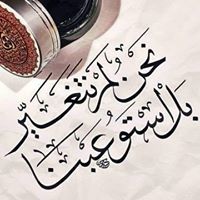 نحن لم نتغيّر
بل استوعبنا